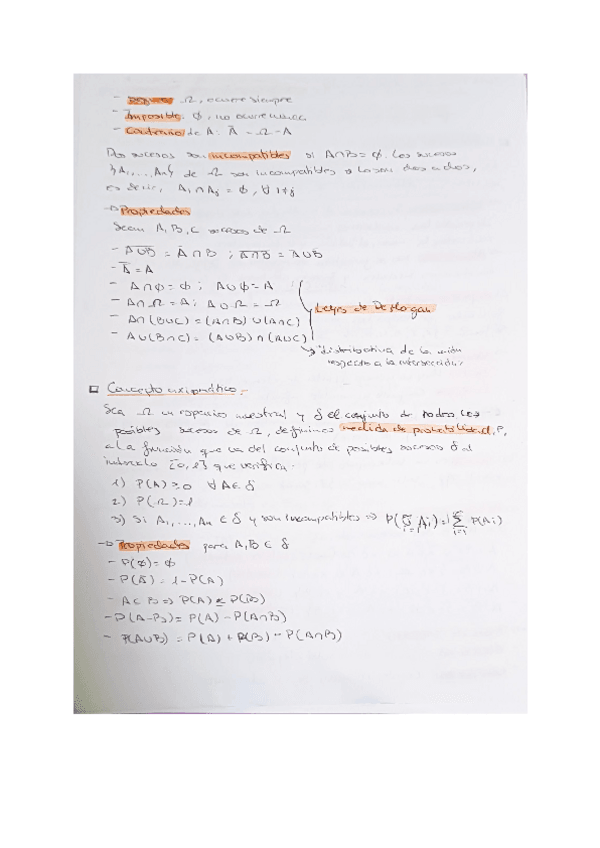 - Ω, ocurre siempre
- Imposible: ϕ, no ocurre nunca
- Contrario de A: Ā = Ω - A
Dos sucesos son incompatibles si A∩B = ϕ. Los sucesos
{A₁,...,Aₙ} de Ω son incompatibles si lo son dos a dos,
es decir, Aᵢ ∩ Aⱼ = ϕ, ∀ i≠j
→ Propiedades
Sean A, B, C sucesos de Ω
- A̅∪̅B̅ = Ā ∩ B̅ ; A̅∩̅B̅ = Ā ∪ B̅
- A̿ = A
- A∩ϕ = ϕ ; A∪ϕ = A
- A∩Ω = A ; A∪Ω = Ω
Leyes de De Morgan
- A∩(B∪C) = (A∩B)∪(A∩C)
- A∪(B∩C) = (A∪B)∩(A∪C)
→ distributiva de la unión
respecto a la intersección.
Concepto axiomático.-
Sea Ω un espacio muestral y S el conjunto de todos los
posibles sucesos de Ω, definimos medida de probabilidad, P,
a la función que va del conjunto de posibles sucesos S al
intervalo [0,1] que verifica:
1) P(A) ≥ 0 ∀A∈ S
2) P(Ω) = 1
3) Si A₁,...,Aₙ ∈ S y son incompatibles ⇒ P(∪ᵢ₌₁ Aᵢ) = ∑ᵢ₌₁ P(Aᵢ)
→ Propiedades para A, B ∈ S
- P(ϕ) = ϕ
- P(Ā) = 1 - P(A)
- A⊂B ⇒ P(A) ≤ P(B)
- P(A-B) = P(A) - P(A∩B)
- P(A∪B) = P(A) + P(B) - P(A∩B)